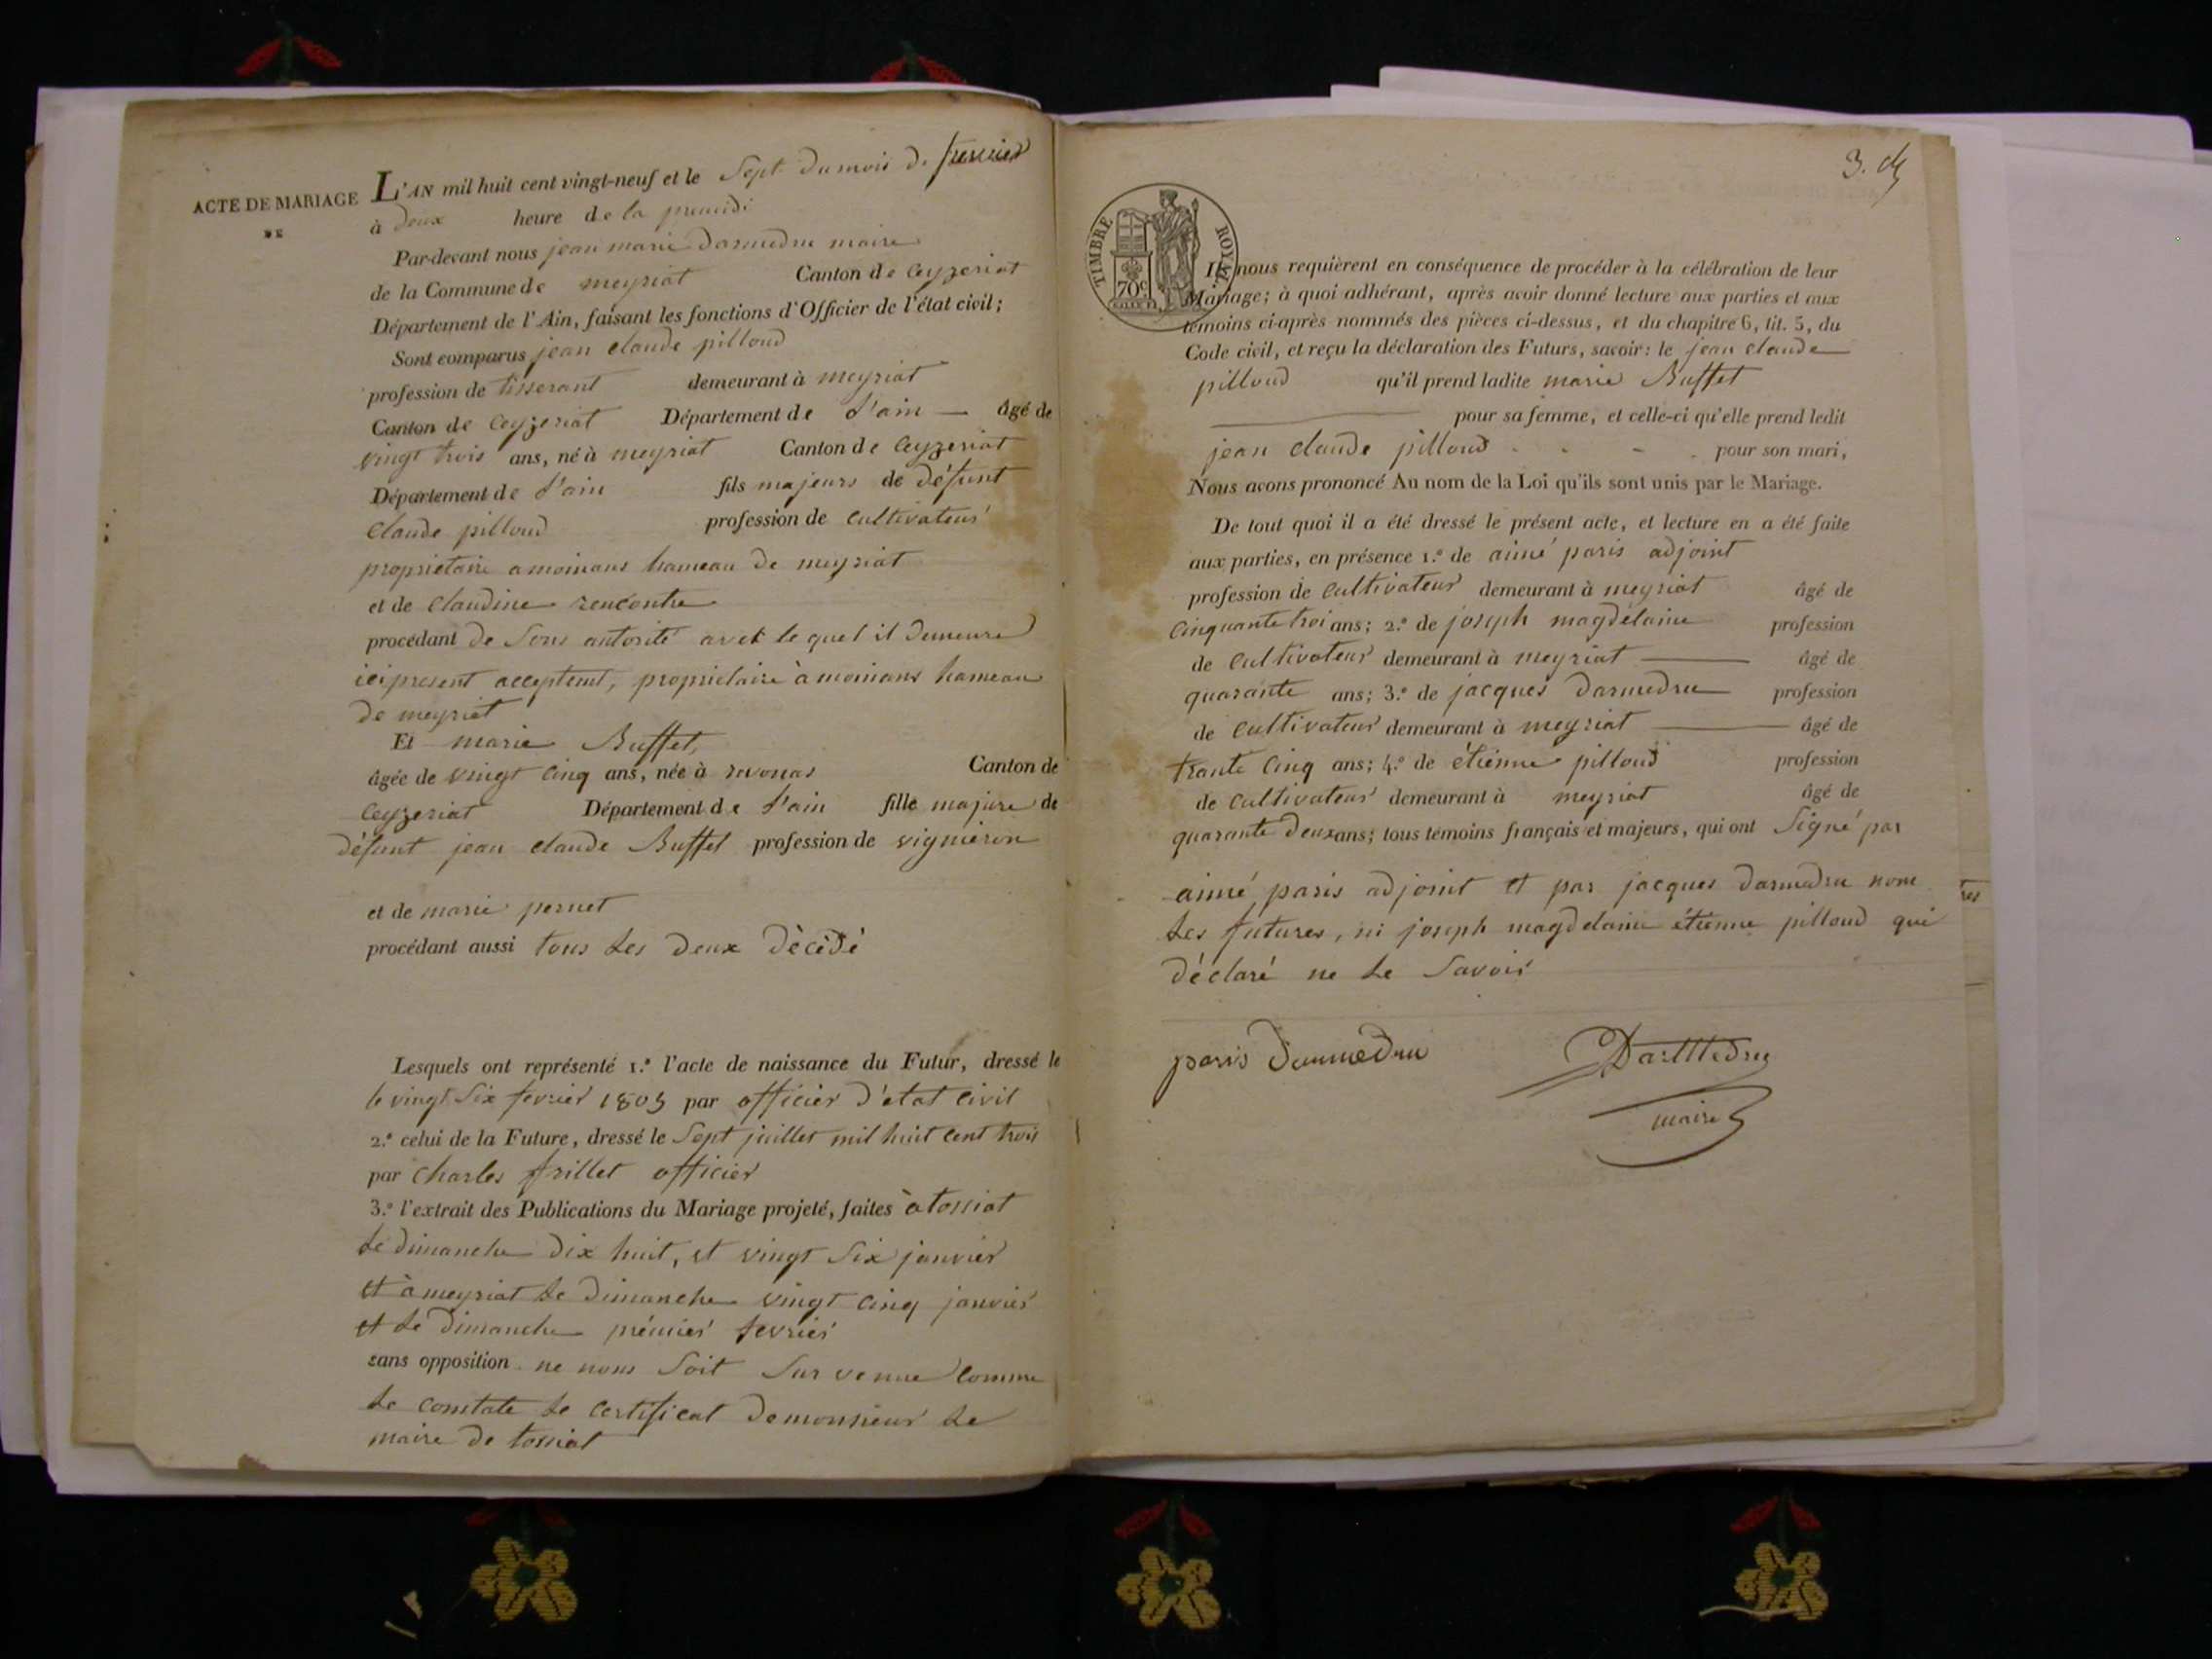 ACTE DE MARIAGE
DE
L'AN mil huit cent vingt-neuf et le Sept du mois de fevrier
à deux heure de la
Par-devant nous jean marie darmedru maire
de la Commune de meyriat Canton de Ceyzeriat
Département de l'Ain, faisant les fonctions d'Officier de l'état civil;
Sont comparus jean claude pilloud
profession de tisserant demeurant à meyriat
Canton de Ceyzeriat Département de l'ain — âgé de
vingt trois ans, né à meyriat Canton de Ceyzeriat
Département de l'ain fils majeurs de défunt
Claude pilloud profession de Cultivateur
proprietaire a moinans hameau de meyriat
et de Claudine rencontre
procédant de Sons autorité avek le quel il demeure
ici present acceptent, proprietaire à moinans hameau
de meyriat
Et marie Buffet,
âgée de vingt Cinq ans, née à revonas Canton de
Ceyzeriat Département de l'ain fille majure de
défunt jean claude Buffet profession de vigneron
et de marie pernet
procédant aussi tous les deux dècèdè
Lesquels ont représenté 1.° l'acte de naissance du Futur, dressé le
le vingt Six fevrier 1805 par officier d'état Civil
2.° celui de la Future, dressé le Sept juillet mil huit Cent trois
par Charles frillet officier
3.° l'extrait des Publications du Mariage projeté, faites à tossiat
le dimanche dix huit, et vingt Six janvier
et à meyriat le dimanche vingt Cinq janvier
et le dimanche prémier fevrier
sans opposition ne nous Soit Sur venue Comme
le constate le Certificat de monsieur le
maire de tossiat
3.
TIMBRE ROYAL
70c
Ils nous requièrent en conséquence de procéder à la célébration de leur
Mariage; à quoi adhérant, après avoir donné lecture aux parties et aux
témoins ci-après nommés des pièces ci-dessus, et du chapitre 6, tit. 5, du
Code civil, et reçu la déclaration des Futurs, savoir: le jean claude
pilloud qu'il prend ladite marie Buffet
pour sa femme, et celle-ci qu'elle prend ledit
jean claude pilloud pour son mari,
Nous avons prononcé Au nom de la Loi qu'ils sont unis par le Mariage.
De tout quoi il a été dressé le présent acte, et lecture en a été faite
aux parties, en présence 1.° de aimé paris adjoint
profession de Cultivateur demeurant à meyriat âgé de
Cinquante troi ans; 2.° de joseph magdelaine profession
de Cultivateur demeurant à meyriat — âgé de
quarante ans; 3.° de jacques darmedru profession
de Cultivateur demeurant à meyriat — âgé de
trante Cinq ans; 4.° de étienne pilloud profession
de Cultivateur demeurant à meyriat âgé de
quarante deux ans; tous témoins français et majeurs, qui ont Signé par
aimé paris adjoint et par jacques darmedru none
les futures, ni joseph magdelaine étienne pilloud qui
déclaré ne le Savoir
paris Darmedru Darmedru
maire